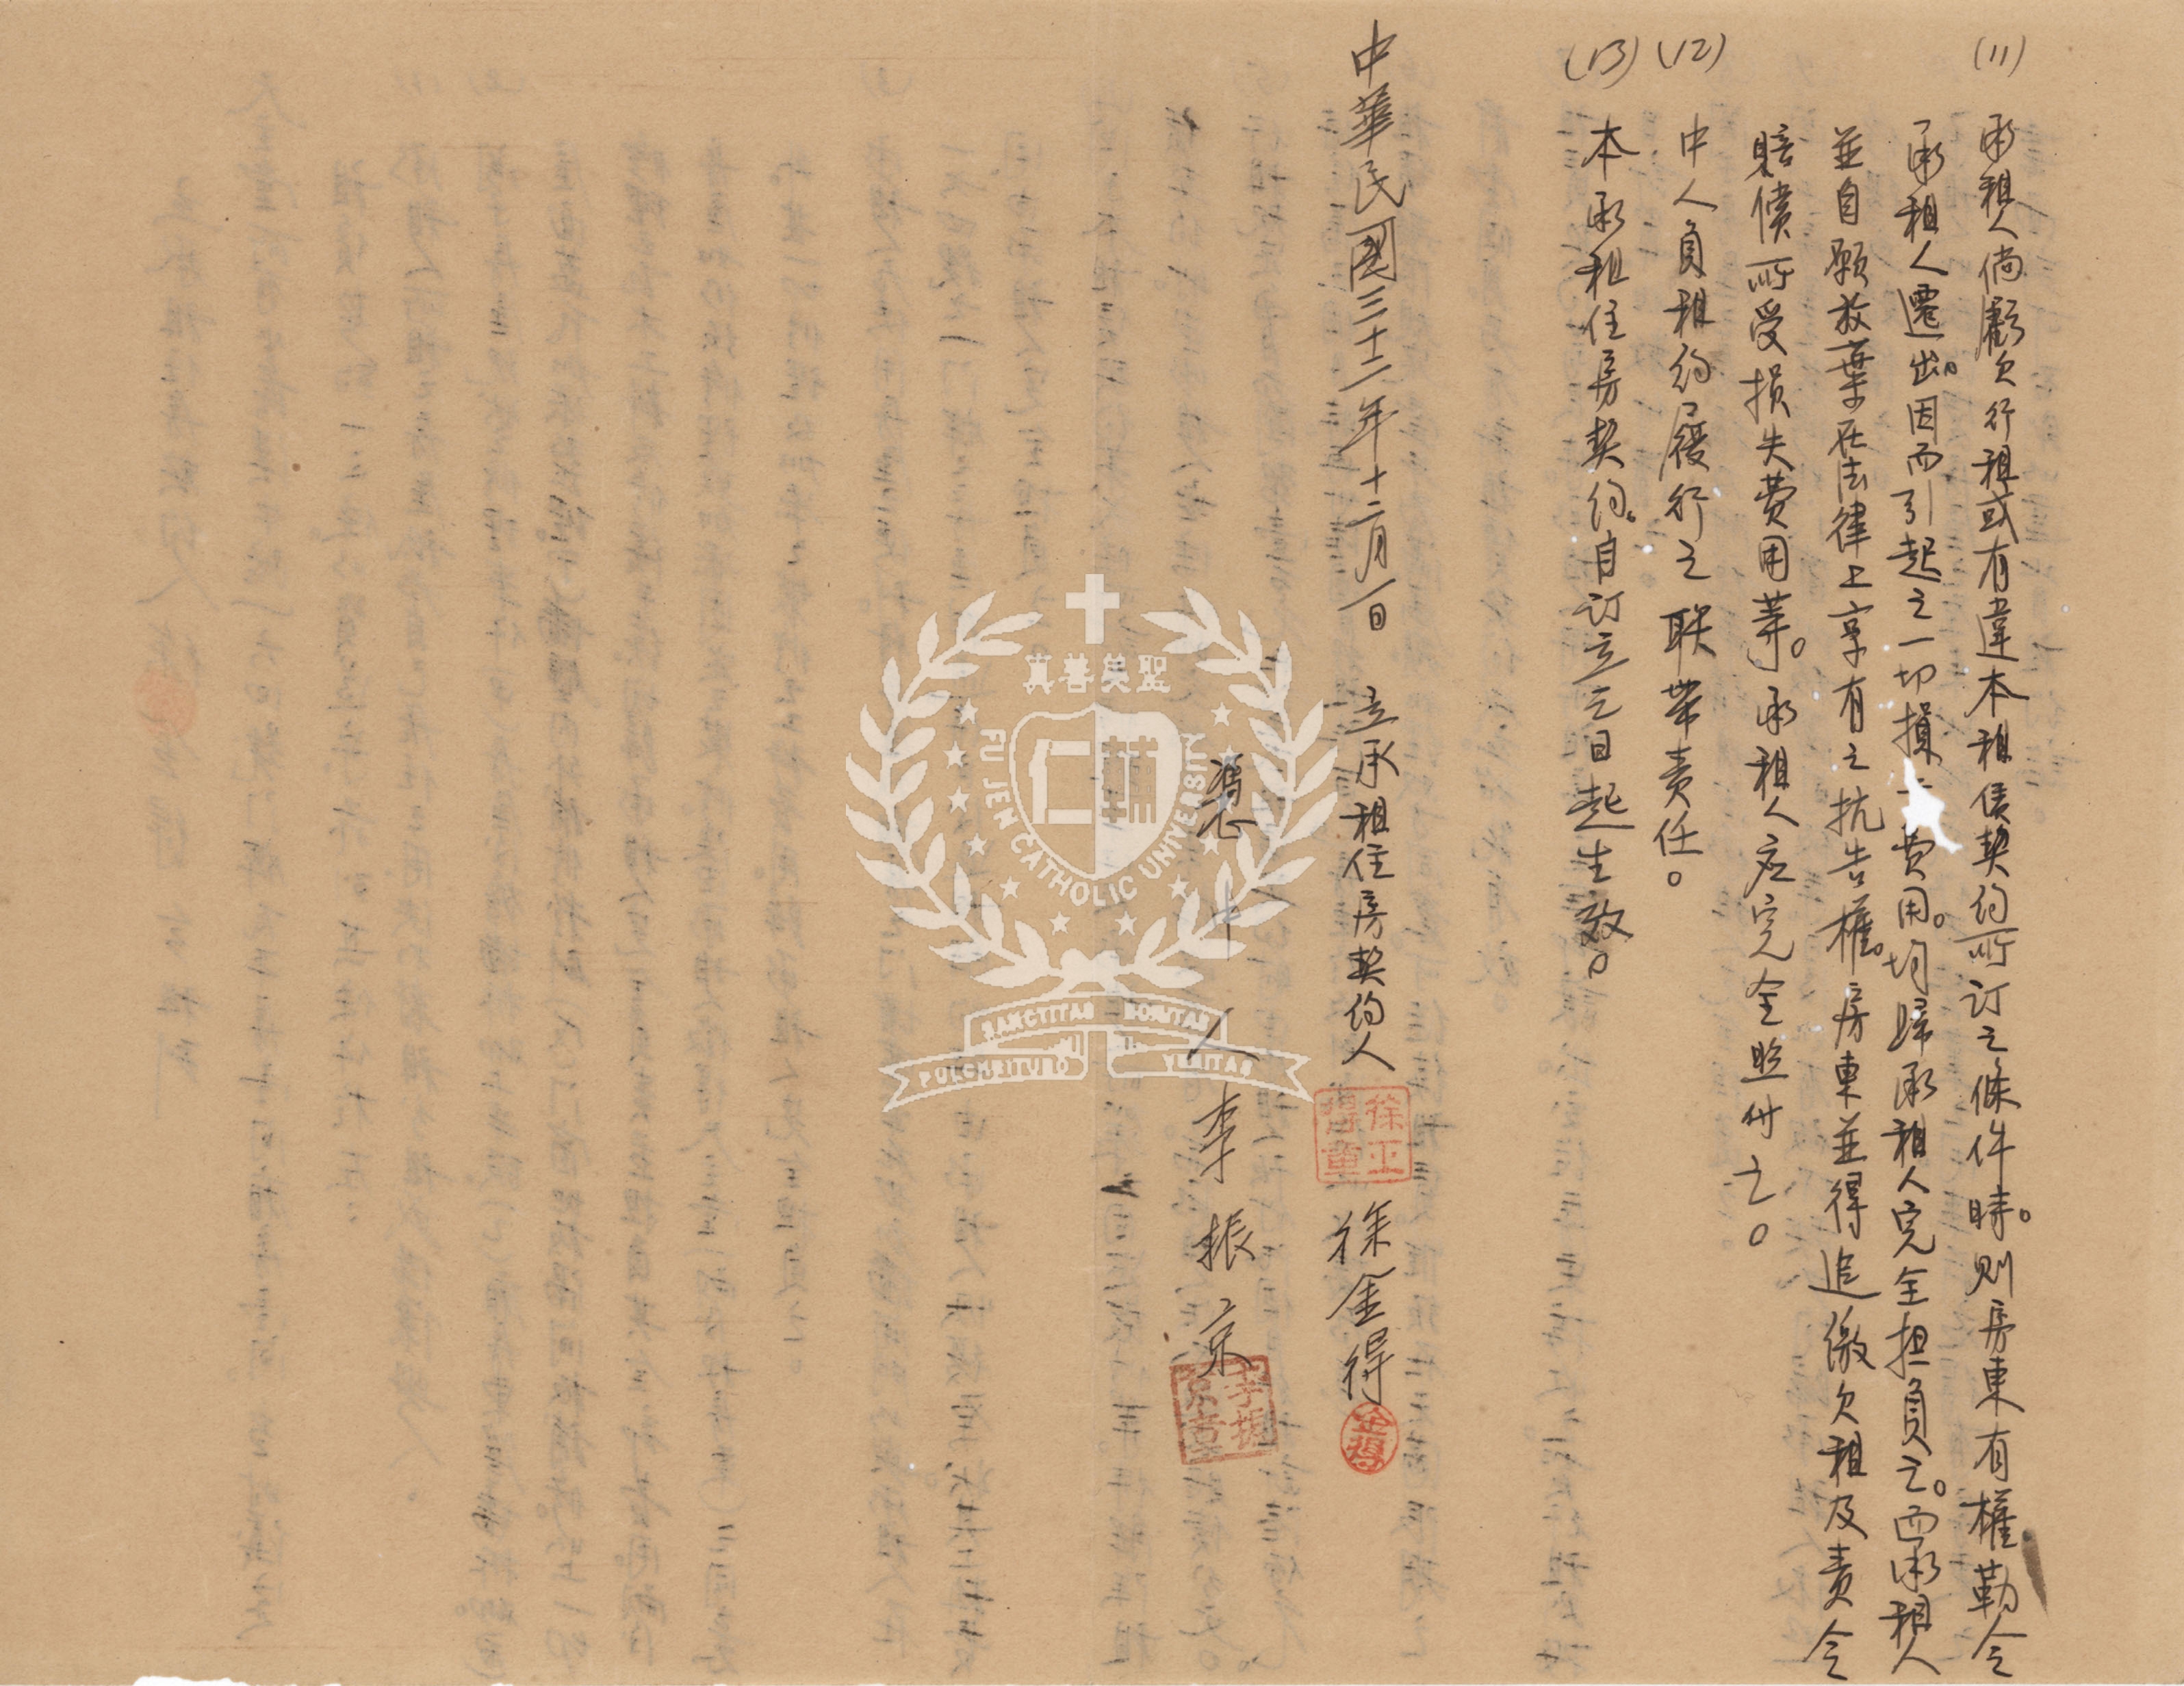 (11) 承租人倘虧欠行租或有違本租賃契約所訂之條件時。則房東有權勒令
承租人遷出。因而引起之一切損 費用。均歸承租人完全担負之。而承租人
並自願放棄在法律上享有之抗告權。房東並得追繳欠租及責令
賠償所受損失費用等。承租人应完全照付之。
(12) 中人負租約履行之聯带責任。
(13) 本承租住房契約。自訂立之日起生效。
中華民國三十二年十二月一日 立承租住房契約人 徐金得
憑中人 李振京
金得
李振京章
真善美聖
FU JEN CATHOLIC UNIVERSITY
SANCTITAS BONITAS
PULCHRITUDO VERITAS